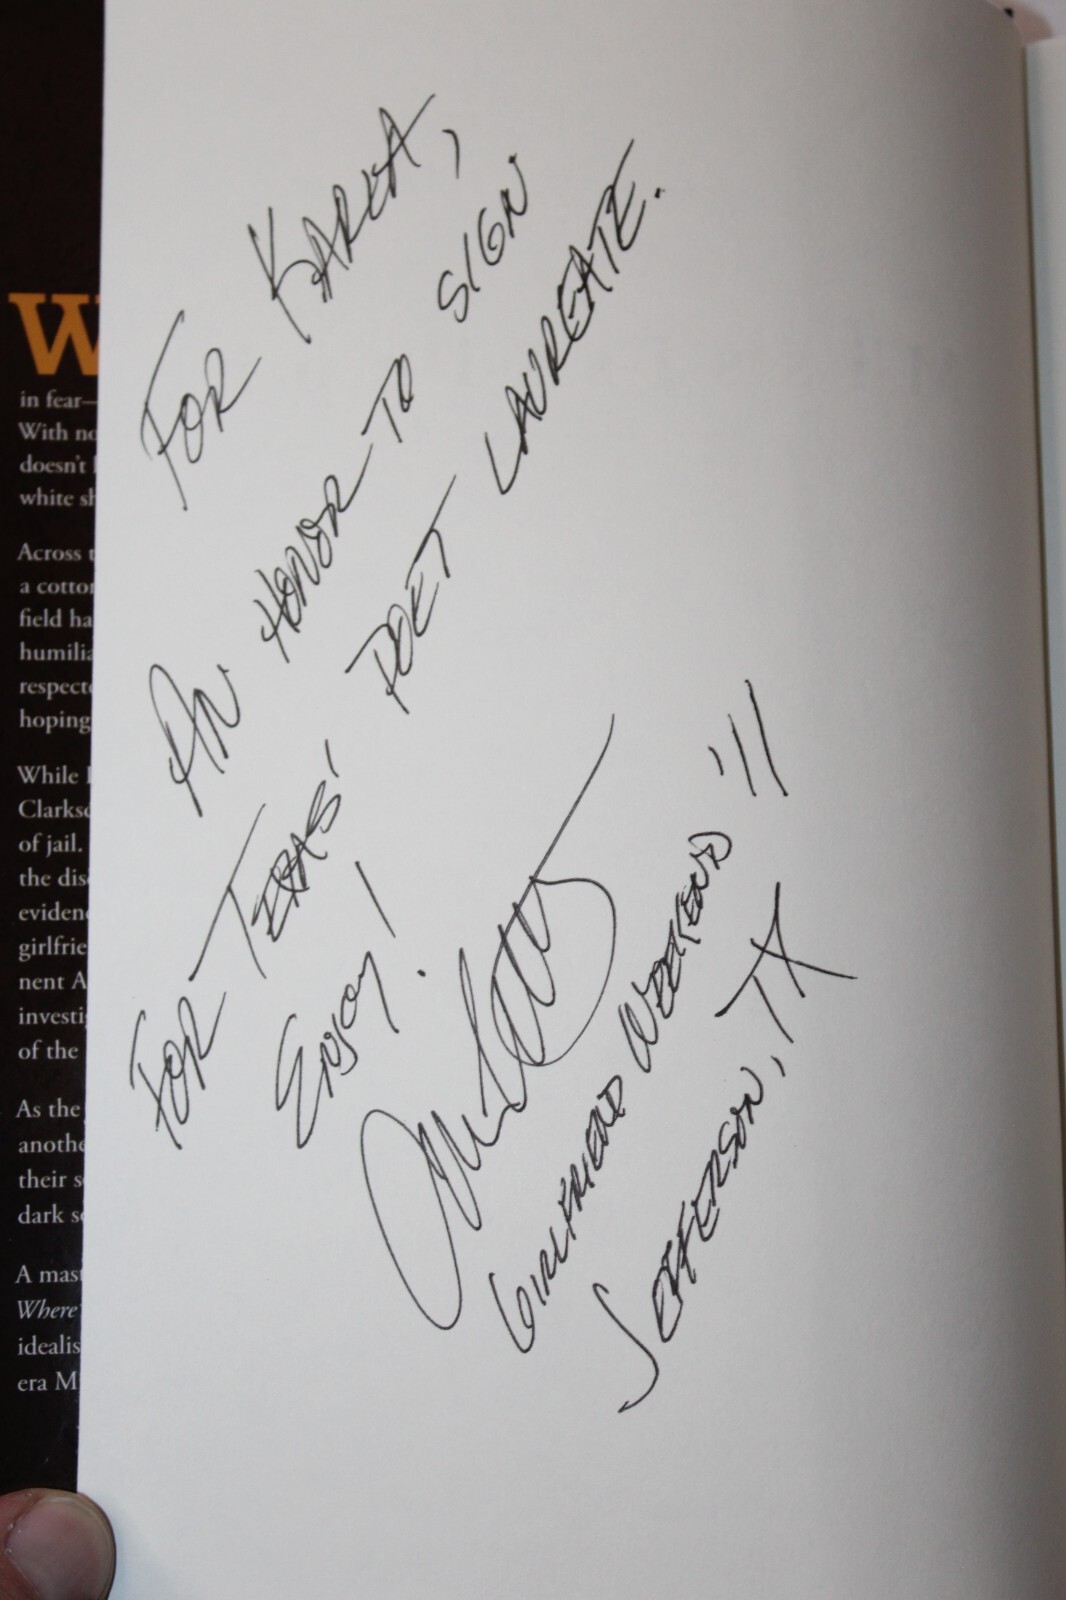 W
in fear—
With no
doesn't
white sh
Across t
a cotto
field ha
humilia
respecte
hoping
While
Clarkso
of jail.
the dis
eviden
girlfrie
nent A
investi
of the
As the
anothe
their s
dark s
A mas
Where
idealis
era M
FOR KARLA,
AN HONOR TO SIGN
FOR TEXAS' POET LAUREATE.
ENJOY!
GIRLFRIEND WEEKEND '11
JEFFERSON, TX